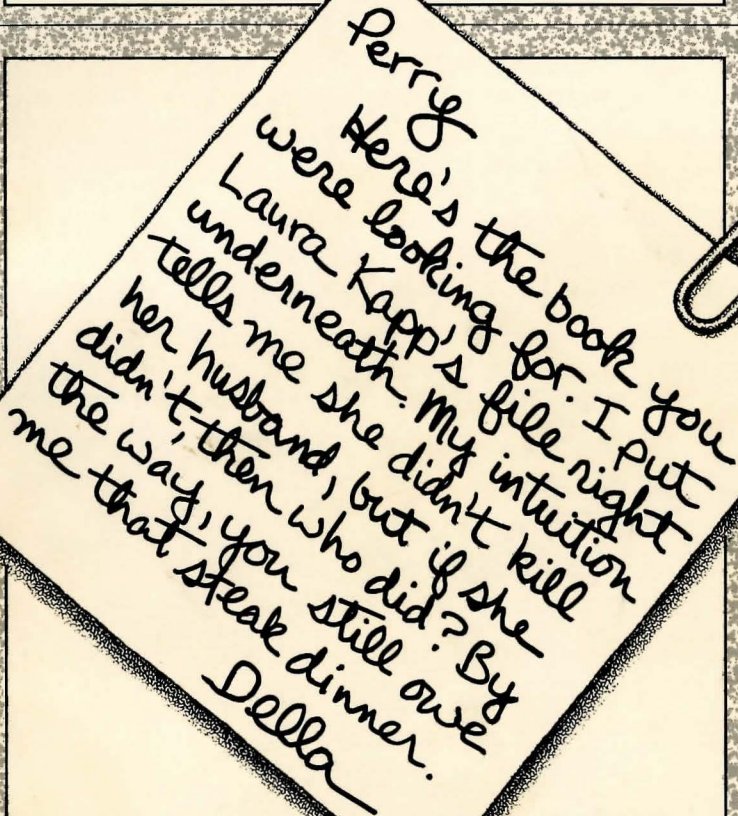 Perry
Here's the book you
were looking for. I put
Laura Kapp's file right
underneath. My intuition
tells me she didn't kill
her husband, but if she
didn't, then who did? By
the way, you still owe
me that steak dinner.
Della